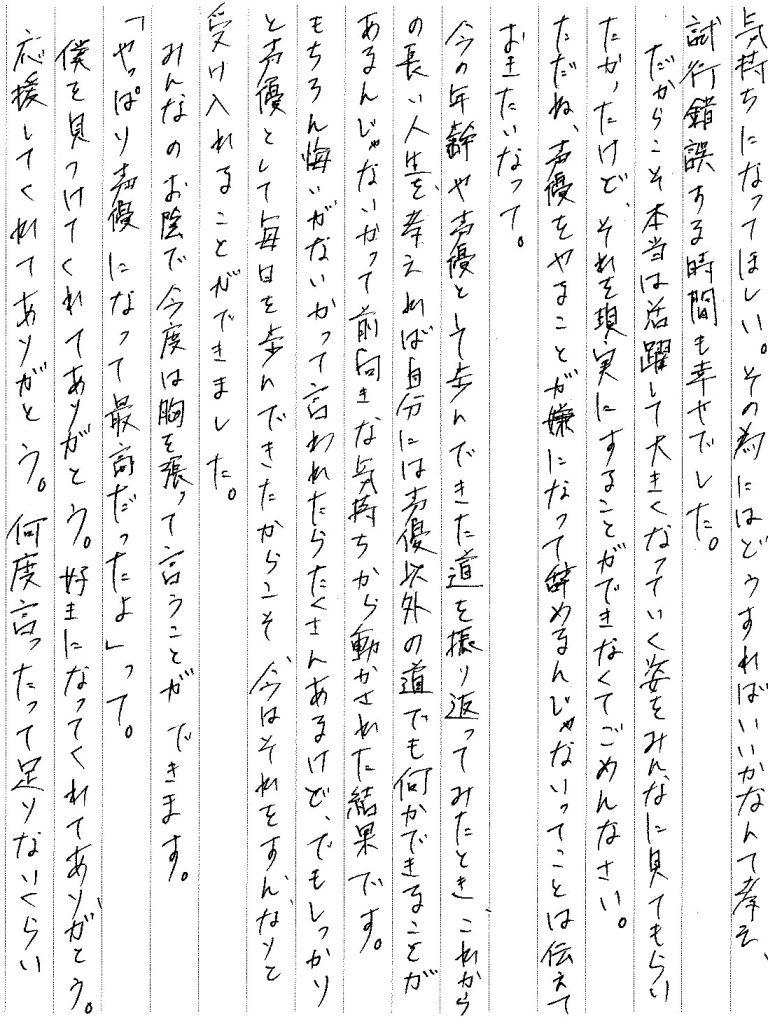 気持ちになってほしい。その為にはどうすればいいかなんて考え、
試行錯誤する時間も幸せでした。
だからこそ本当は活躍して大きくなっていく姿をみんなに見てもらい
たかったけど、それを現実にすることができなくてごめんなさい。
ただね、声優をやることが嫌になって辞めるんじゃないってことは伝えて
おきたいなって。
今の年齢や声優として歩んできた道を振り返ってみたとき、これから
の長い人生を考えれば自分には声優以外の道でも何かできることが
あるんじゃないかって前向きな気持ちから動かされた結果です。
もちろん悔いがないかって言われたらたくさんあるけど、でもしっかり
と声優として毎日を歩んできたからこそ今はそれをすんなりと
受け入れることができました。
みんなのお陰で今度は胸を張って言うことができます。
「やっぱり声優になって最高だったよ」って。
僕を見つけてくれてありがとう。好きになってくれてありがとう。
応援してくれてありがとう。何度言ったって足りないくらい